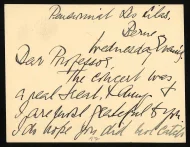 Pensionnat Les Lilas,
Berne
Wednesday Evening.
Dear Professor,
The concert was
a real treat. &
I are most grateful to you.
I do hope you did not catch